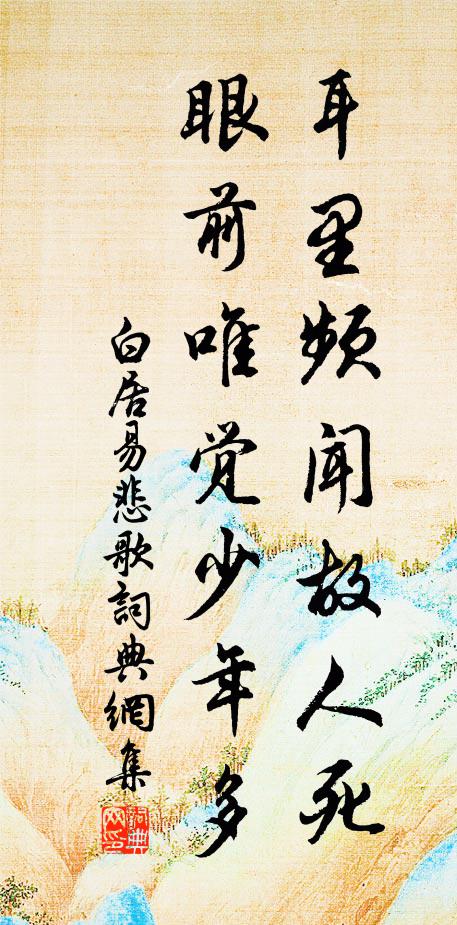 耳里频闻故人死
眼前唯觉少年多
白居易悲歌詞典網集
詞典网印